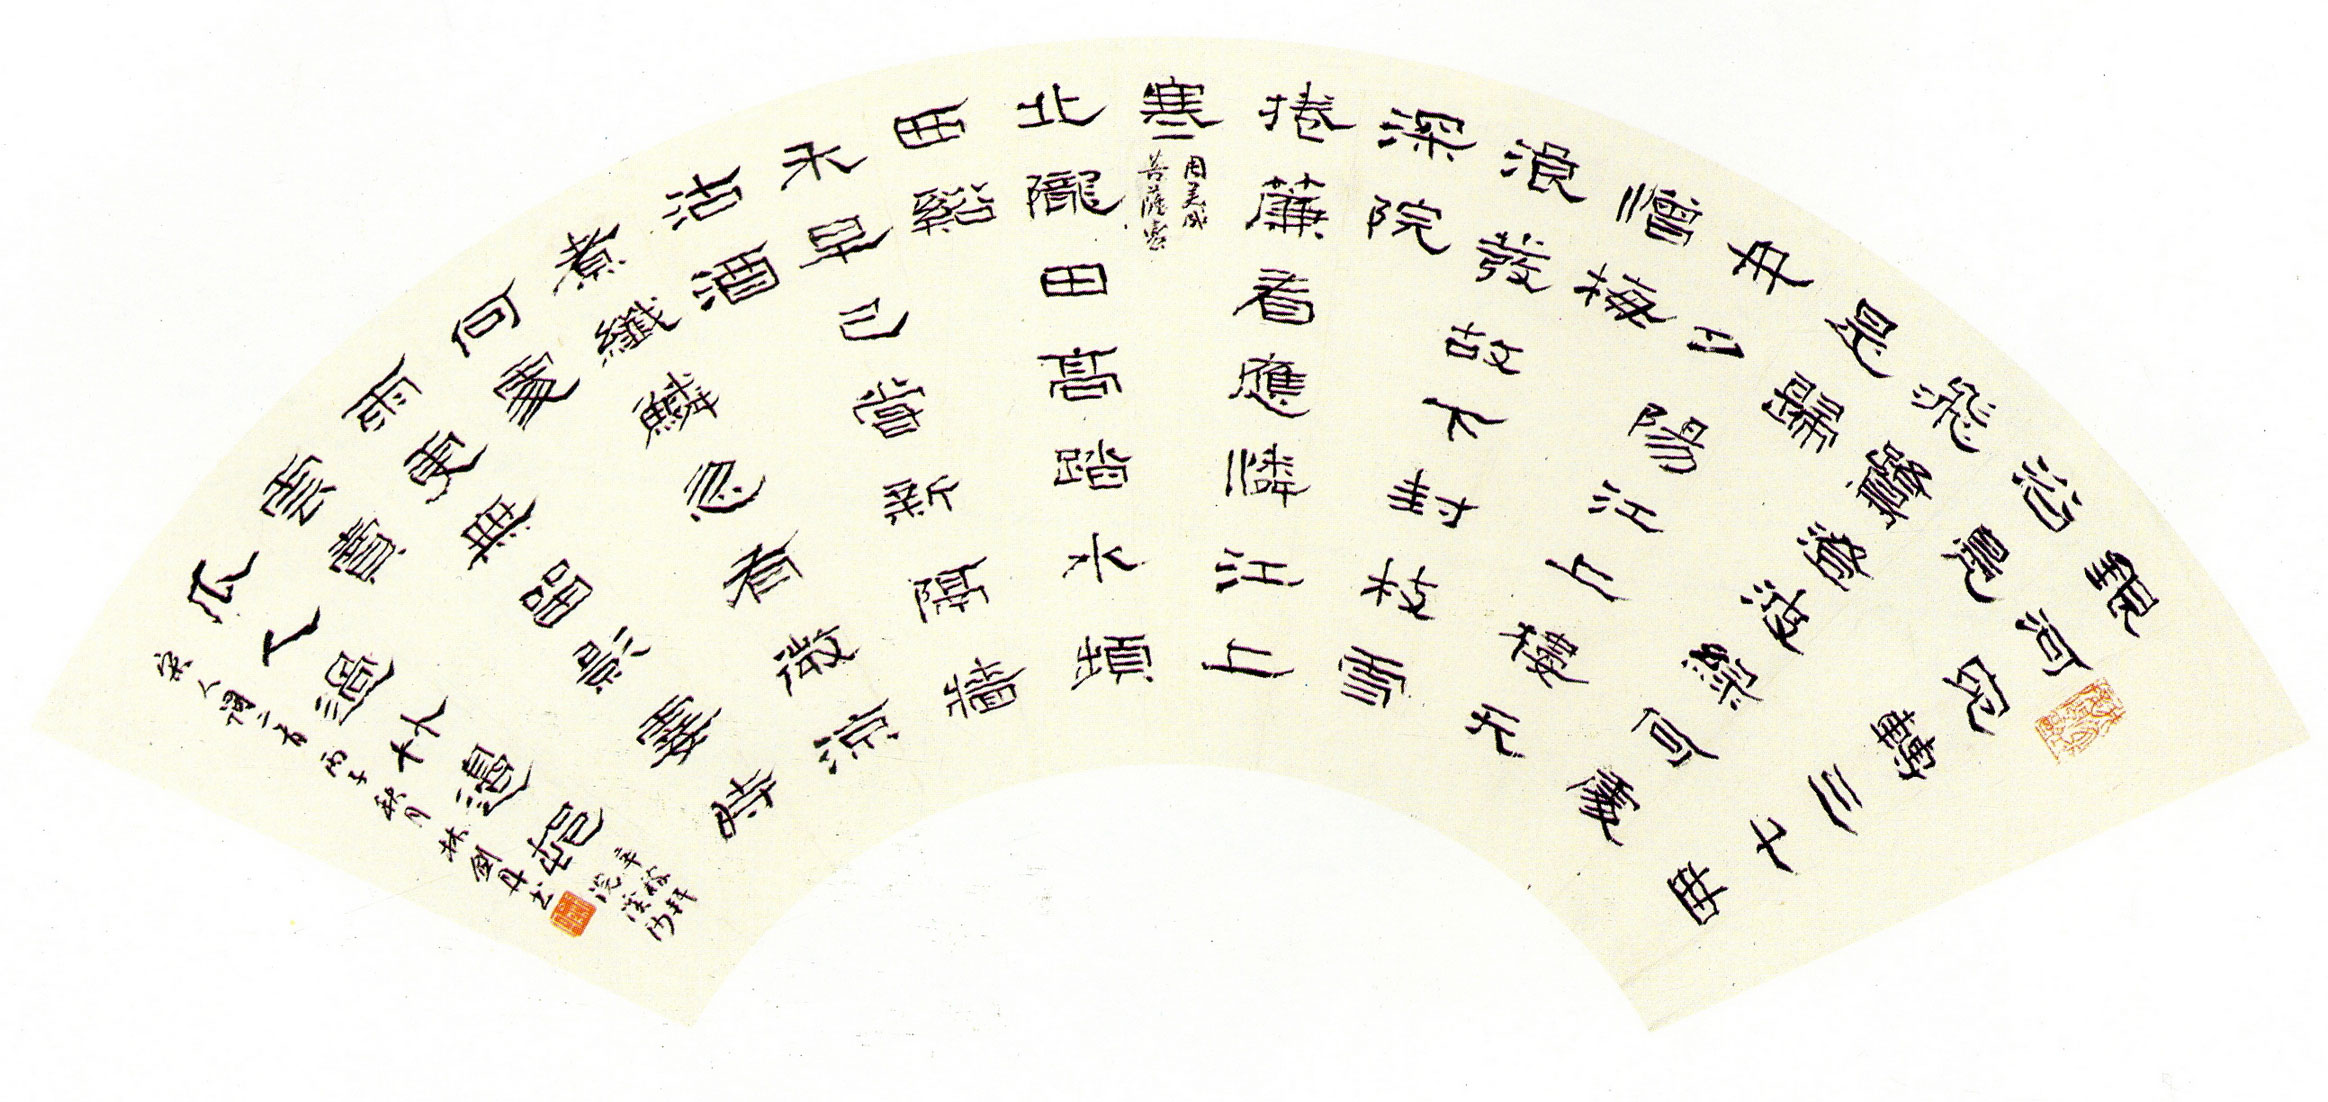 銀河宛轉三千曲
浴鳧
飛鷺澄波綠何處
是歸
舟夕陽江上樓天
憎梅
浪發故下封枝雪
深院
捲簾看應憐江上
寒
周美成
菩薩蠻
北隴田高踏水頻
西谿
禾早已嘗新隔牆
沽酒
煮纖鱗忽有微涼
何處
雨更無留影霎時
雲賣
瓜人過竹邊邨
辛稼軒
浣溪沙
宋人詞二首丙子秋月林劍丹書